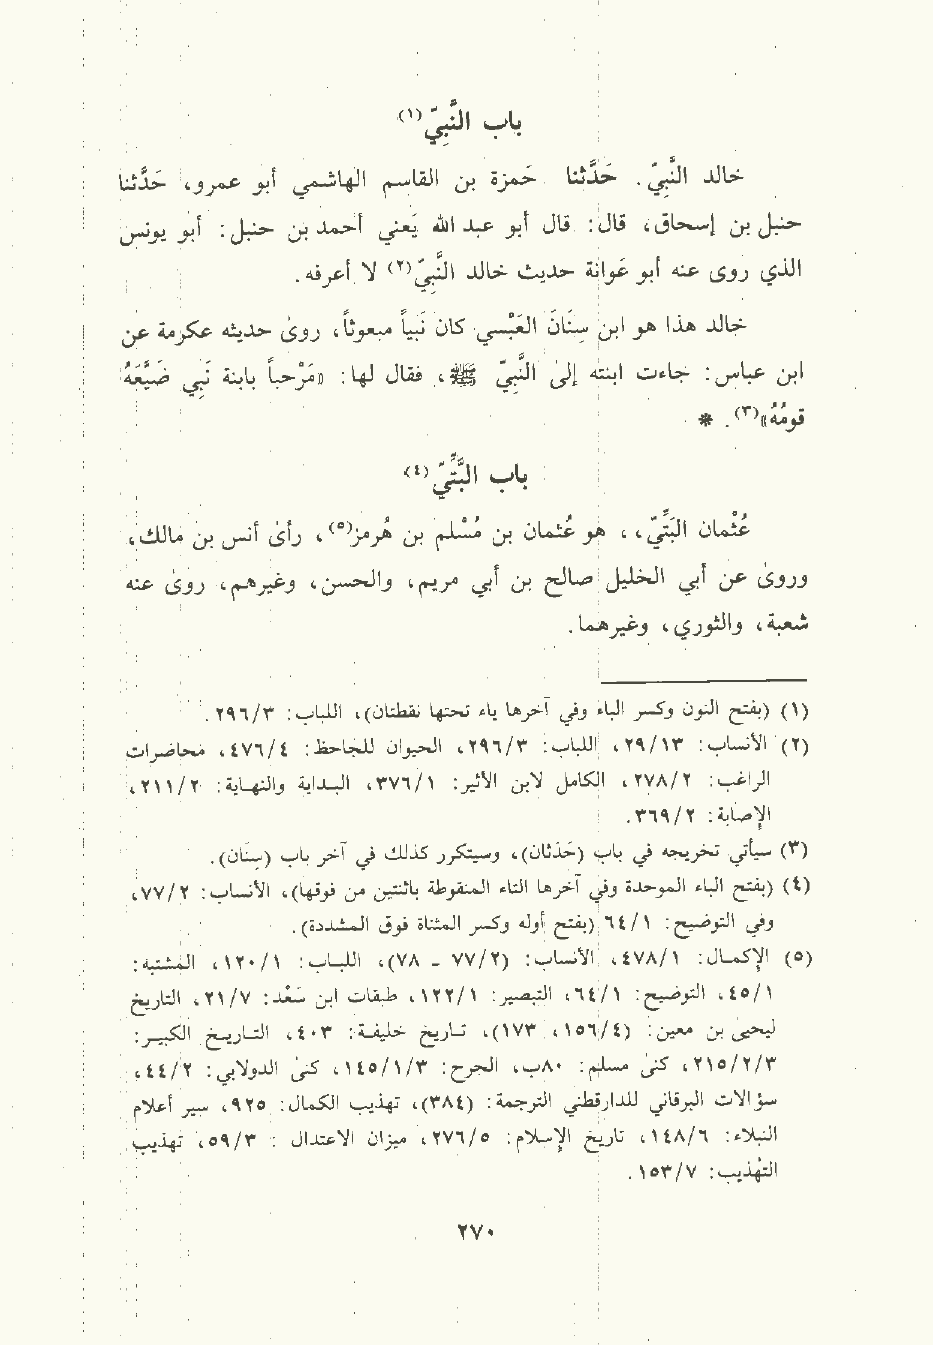 باب النَّبِيّ(١)
خالد النَّبِيّ. حَدَّثنا حَمزة بن القاسم الهاشمي أبو عمرو، حَدَّثنا
حنبل بن إسحاق، قال: قال أبو عبد الله يَعني أحمد بن حنبل: أبو يونس
الذي روى عنه أبو عَوانة حديث خالد النَّبِيّ(٢) لا أعرفه.
خالد هذا هو ابن سِنَان العَبْسي كان نَبياً مبعوثاً، روىٰ حديثه عكرمة عن
ابن عباس: جاءت ابنته إلىٰ النَّبِيّ ﷺ، فقال لها: «مَرْحباً بابنة نَبِي ضَيَّعَهُ
قومُهُ»(٣). *
باب البَّتِّيّ(٤)
عُثْمان البَتِّيّ،، هو عُثمان بن مُسْلم بن هُرمز(٥)، رأىٰ أنس بن مالك،
وروىٰ عن أبي الخليل صالح بن أبي مريم، والحسن، وغيرهم، روىٰ عنه
شعبة، والثوري، وغيرهما.
(١) (بفتح النون وكسر الباء وفي آخرها ياء تحتها نقطتان)، اللباب: ٢٩٦/٣.
(٢) الأنساب: ٢٩/١٣، اللباب: ٢٩٦/٣، الحيوان للجاحظ: ٤٧٦/٤، محاضرات
الراغب: ٢٧٨/٢، الكامل لابن الأثير: ٣٧٦/١، البداية والنهاية: ٢١١/٢،
الإصابة: ٣٦٩/٢.
(٣) سيأتي تخريجه في باب (حَدَثان)، وسيتكرر كذلك في آخر باب (سِنَان).
(٤) (بفتح الباء الموحدة وفي آخرها التاء المنقوطة باثنتين من فوقها)، الأنساب: ٧٧/٢،
وفي التوضيح: ٦٤/١ (بفتح أوله وكسر المثناة فوق المشددة).
(٥) الإكمال: ٤٧٨/١، الأنساب: (٧٧/٢ - ٧٨)، اللباب: ١٢٠/١، المشتبه:
٤٥/١، التوضيح: ٦٤/١، التبصير: ١٢٢/١، طبقات ابن سَعْد: ٢١/٧، التاريخ
ليحيىٰ بن معين: (١٥٦/٤، ١٧٣)، تاريخ خليفة: ٤٠٣، التاريخ الكبير:
٢١٥/٢/٣، كنىٰ مسلم: ٨٠ب، الجرح: ١٤٥/١/٣، كنىٰ الدولابي: ٤٤/٢،
سؤالات البرقاني للدارقطني الترجمة: (٣٨٤)، تهذيب الكمال: ٩٢٥، سير أعلام
النبلاء: ١٤٨/٦، تاريخ الإسلام: ٢٧٦/٥، ميزان الاعتدال: ٥٩/٣، تهذيب
التهذيب: ١٥٣/٧.
٢٧٠